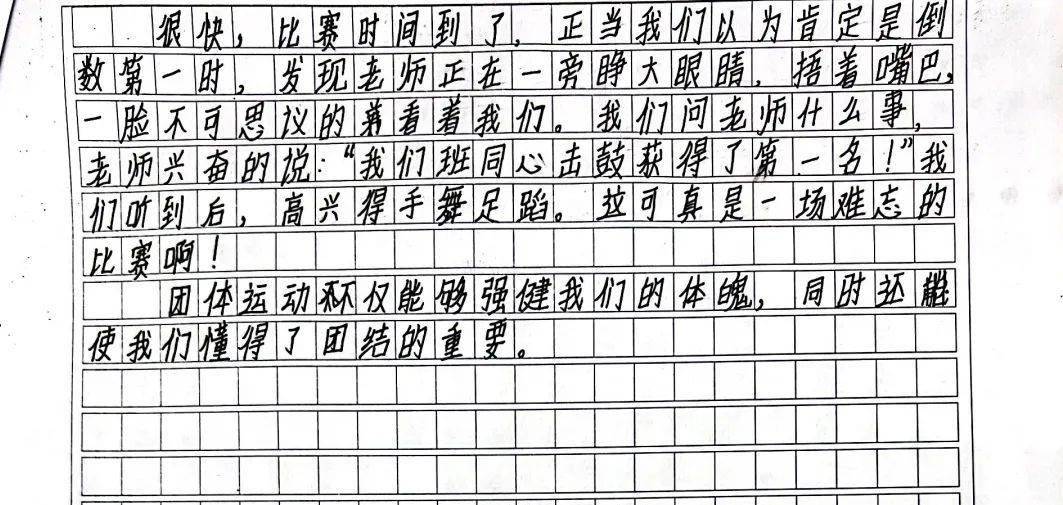 很快，比赛时间到了，正当我们以为肯定是倒
数第一时，发现老师正在一旁睁大眼睛，捂着嘴巴，
一脸不可思议的看着我们。我们问老师什么事，
老师兴奋的说：“我们班同心击鼓获得了第一名！”我
们听到后，高兴得手舞足蹈。这可真是一场难忘的
比赛啊！
团体运动不仅能够强健我们的体魄，同时还能
使我们懂得了团结的重要。